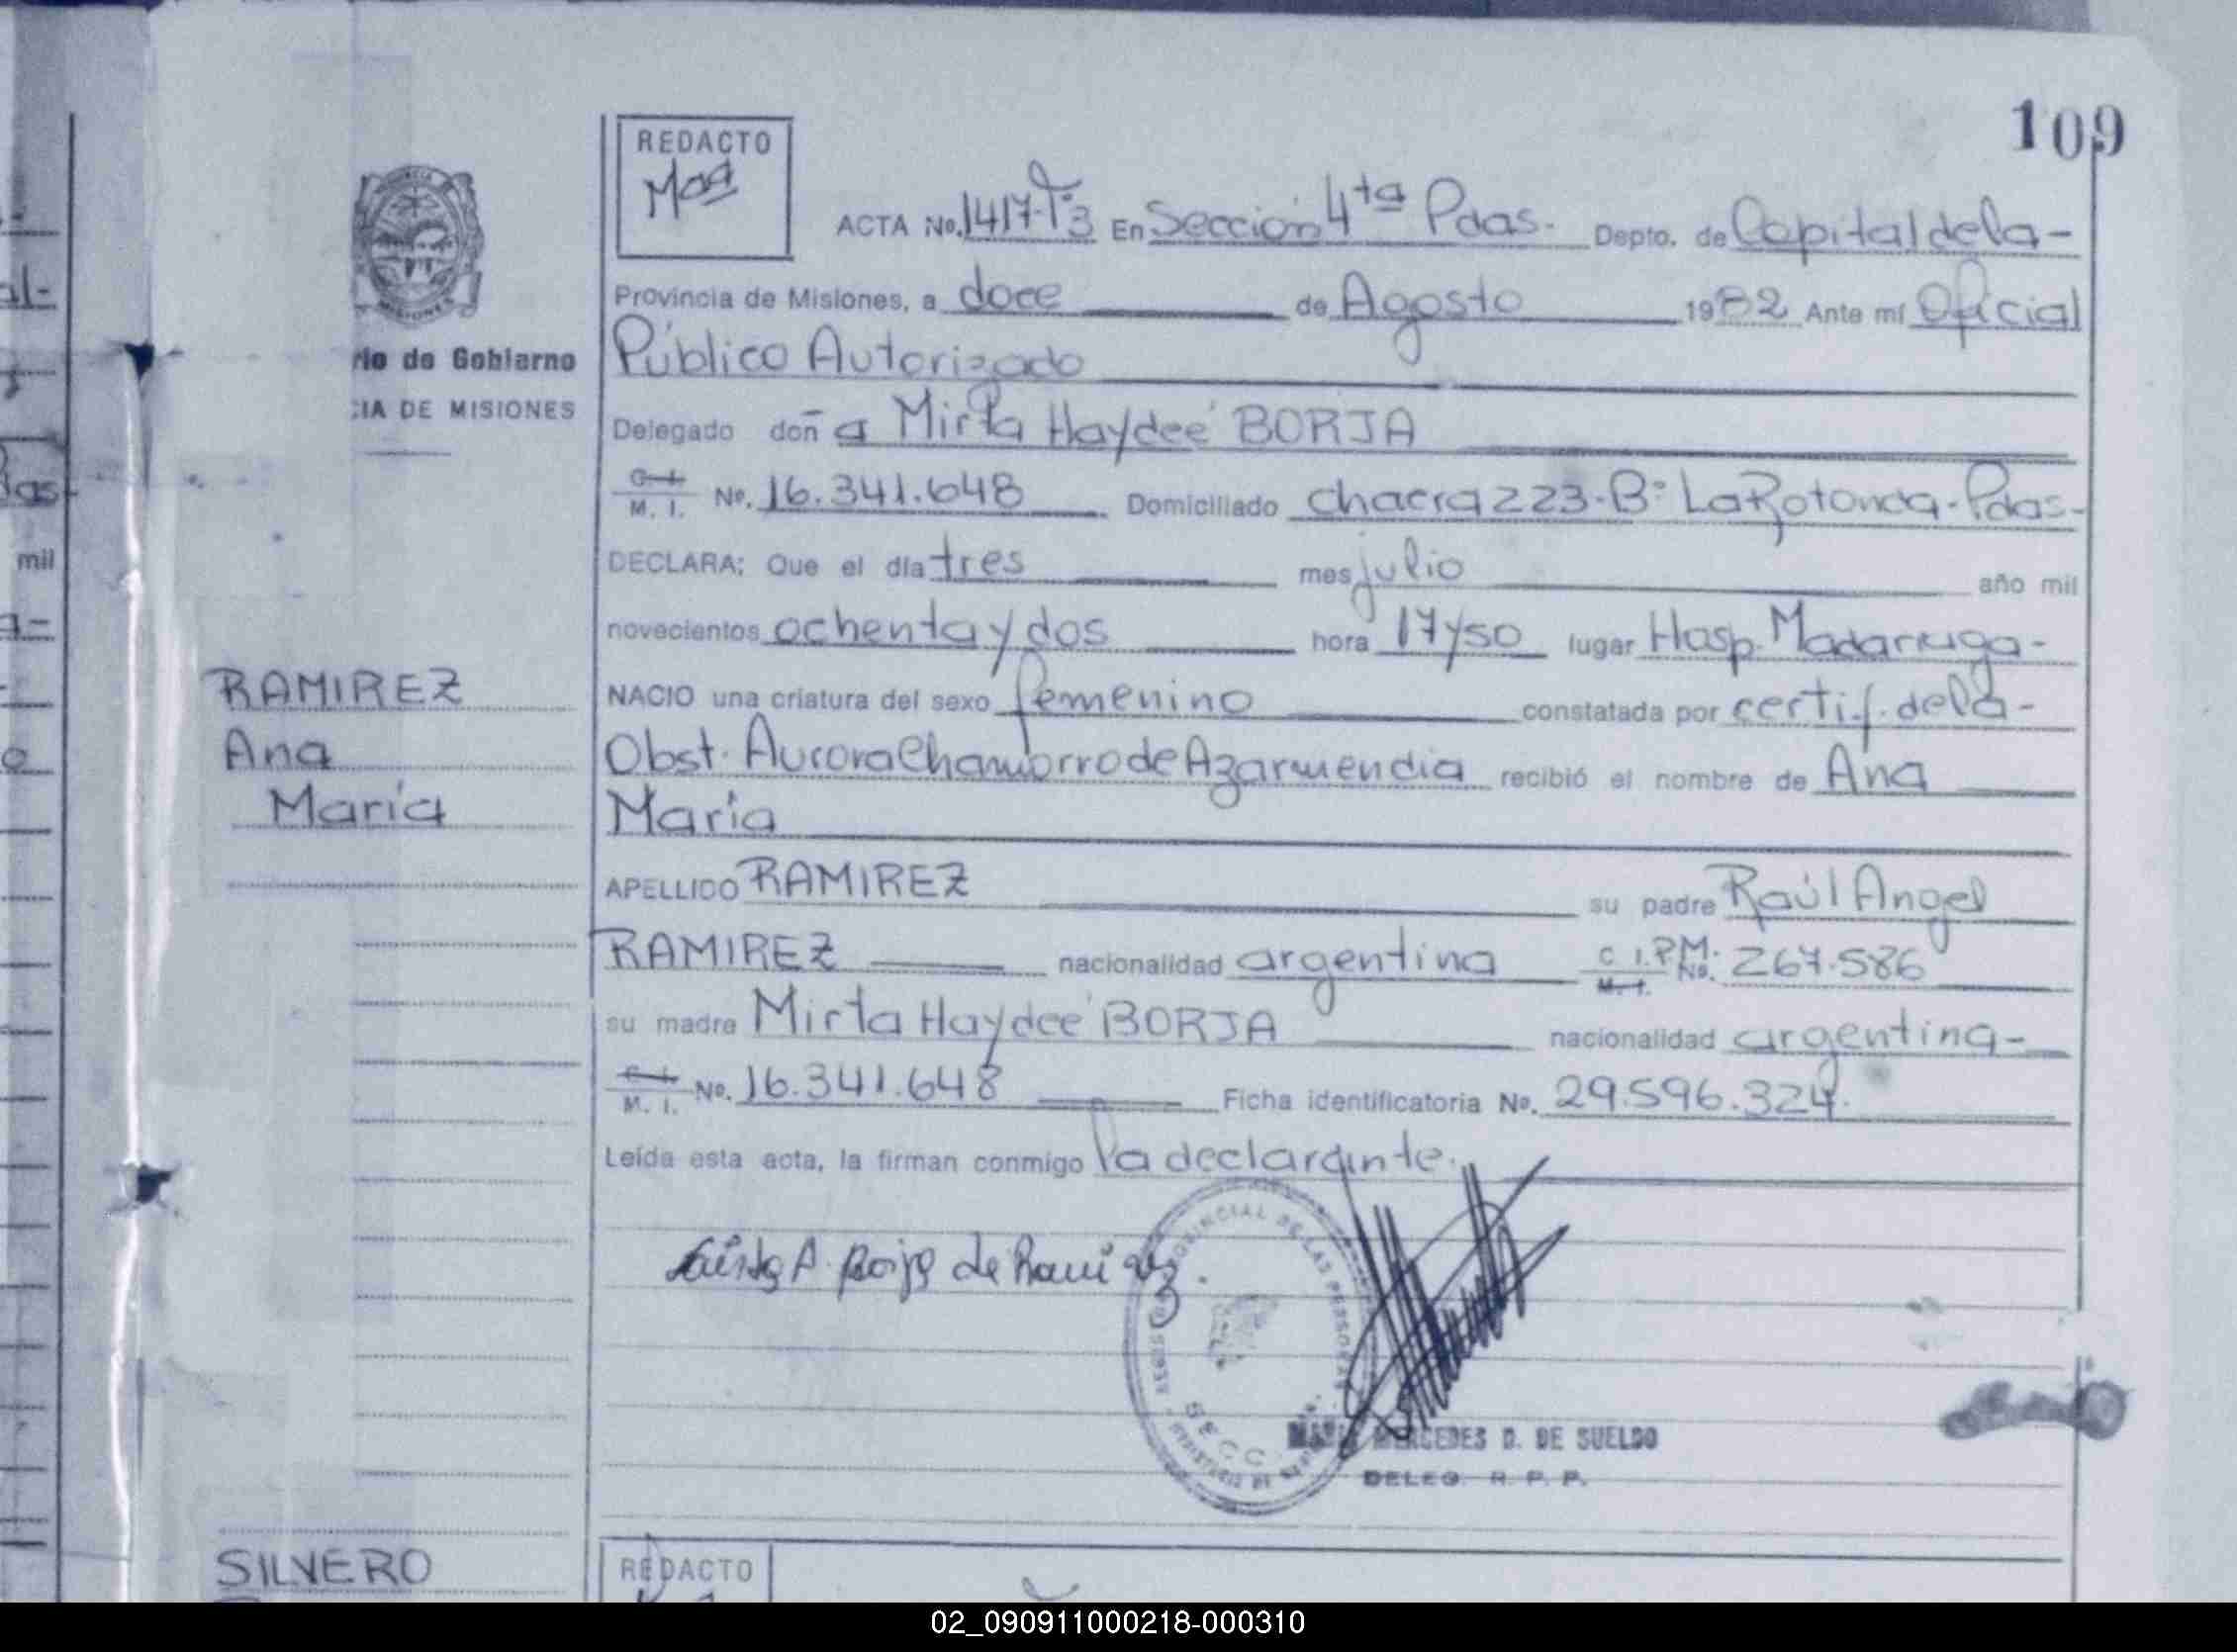 109
REDACTO
ACTA No. 1417-Tº3 En Sección 4ta Pdas.- Depto. de Capital de la-
Provincia de Misiones, a doce de Agosto 1982 Ante mí Oficial
rio de Gobierno
Público Autorizado
CIA DE MISIONES
Delegado doña Mirta Haydeé BORJA
C. I. M. I. No. 16.341.648 Domiciliado chacra 223-Bº La Rotonda-Pdas.-
DECLARA: Que el día tres mes julio año mil
novecientos ochenta y dos hora 17y50 lugar Hosp. Madariaga-
RAMIREZ
NACIO una criatura del sexo femenino constatada por certif. de la-
Ana
Obst. Aurora Chamorro de Azarmendia recibió el nombre de Ana
María
María
APELLIDO RAMIREZ su padre Raúl Angel
RAMIREZ nacionalidad argentina C. I. P.M. M. I. No. 267.586
su madre Mirta Haydeé BORJA nacionalidad argentina-
C. I. M. I. No. 16.341.648 Ficha identificatoria No. 29.596.324.
Leída esta acta, la firman conmigo la declarante.
Borja de Ramirez
PROVINCIAL DE LAS PERSONAS
SECC
MERCEDES D. DE SUELDO
DELEG. R. P. P.
SILVERO
REDACTO
mil
02_090911000218-000310